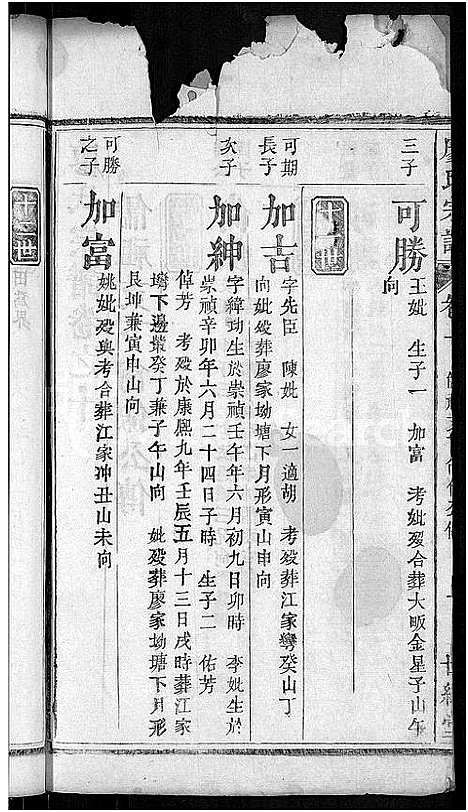 三子
可勝
王妣 生子一 加富 考妣歿合葬大畈金星子山午
向
十世
可期
長子
加吉
字先臣 陳妣 女一適胡 考歿葬江家彎癸山丁
向妣歿葬廖家坳塘下月形寅山申向
次子
加紳
字緯坳生於崇禎壬午年六月初九日卯時 李妣生於
崇禎辛卯年六月二十四日子時 生子二 佑芳
倬芳 考歿於康熙九年壬辰五月十三日戌時葬江家
塝下邊叢癸丁兼子午山向 妣歿葬廖家坳塘下月形
艮坤兼寅申山向
可勝
之子
加富
姚妣歿與考合葬江家冲丑山未向